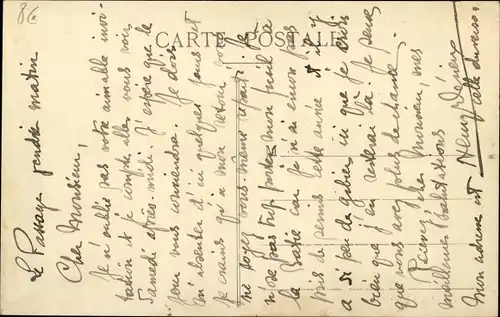 86
CARTE POSTALE
Le Passage jeudi matin
Cher Monsieur,
Je n'oublie pas votre aimable invi-
tation et je compte aller vous voir
Samedi après-midi. J'espère que le
jour vous conviendra. Je dois
m'absenter d'ici quelques jours et
je crains qu'à mon retour
ne soyez vous même reparti. Je
n'ose pas trop porter mon fusil
la Basie car je n'ai encore pas
pris de permis cette année et il y
a si peu de gibier ici que je crois
bien que j'en resterai là. Je pense
que vous avez plus de chance.
Recevez, cher Monsieur, mes
meilleures salutations
Mon adresse est celle du verso